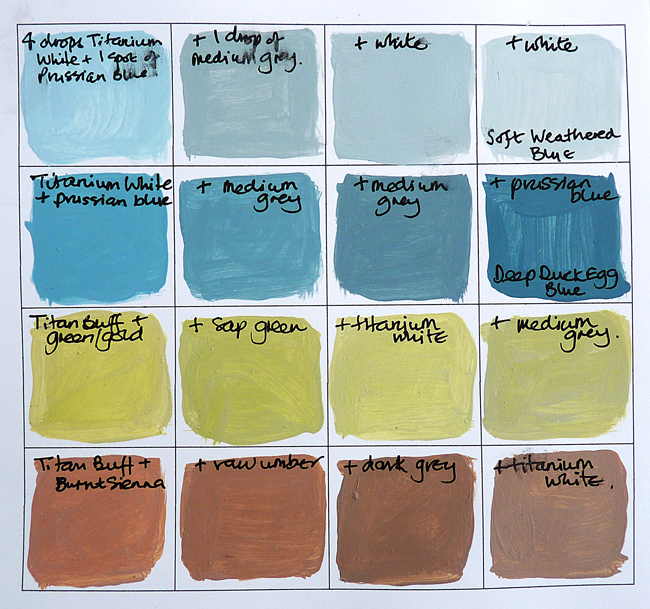 4 drops Titanium
White + 1 spot of
Prussian Blue
+ 1 drop of
medium grey.
+ white
+ white
Soft Weathered
Blue
Titanium White
+ prussian blue
+ medium
grey
+ medium
grey
+ prussian
blue
Deep Duck Egg
Blue
Titan Buff +
green/gold
+ Sap green
+ titanium
white
+ medium
grey.
Titan Buff +
Burnt Sienna
+ raw umber
+ dark grey
+ titanium
white.